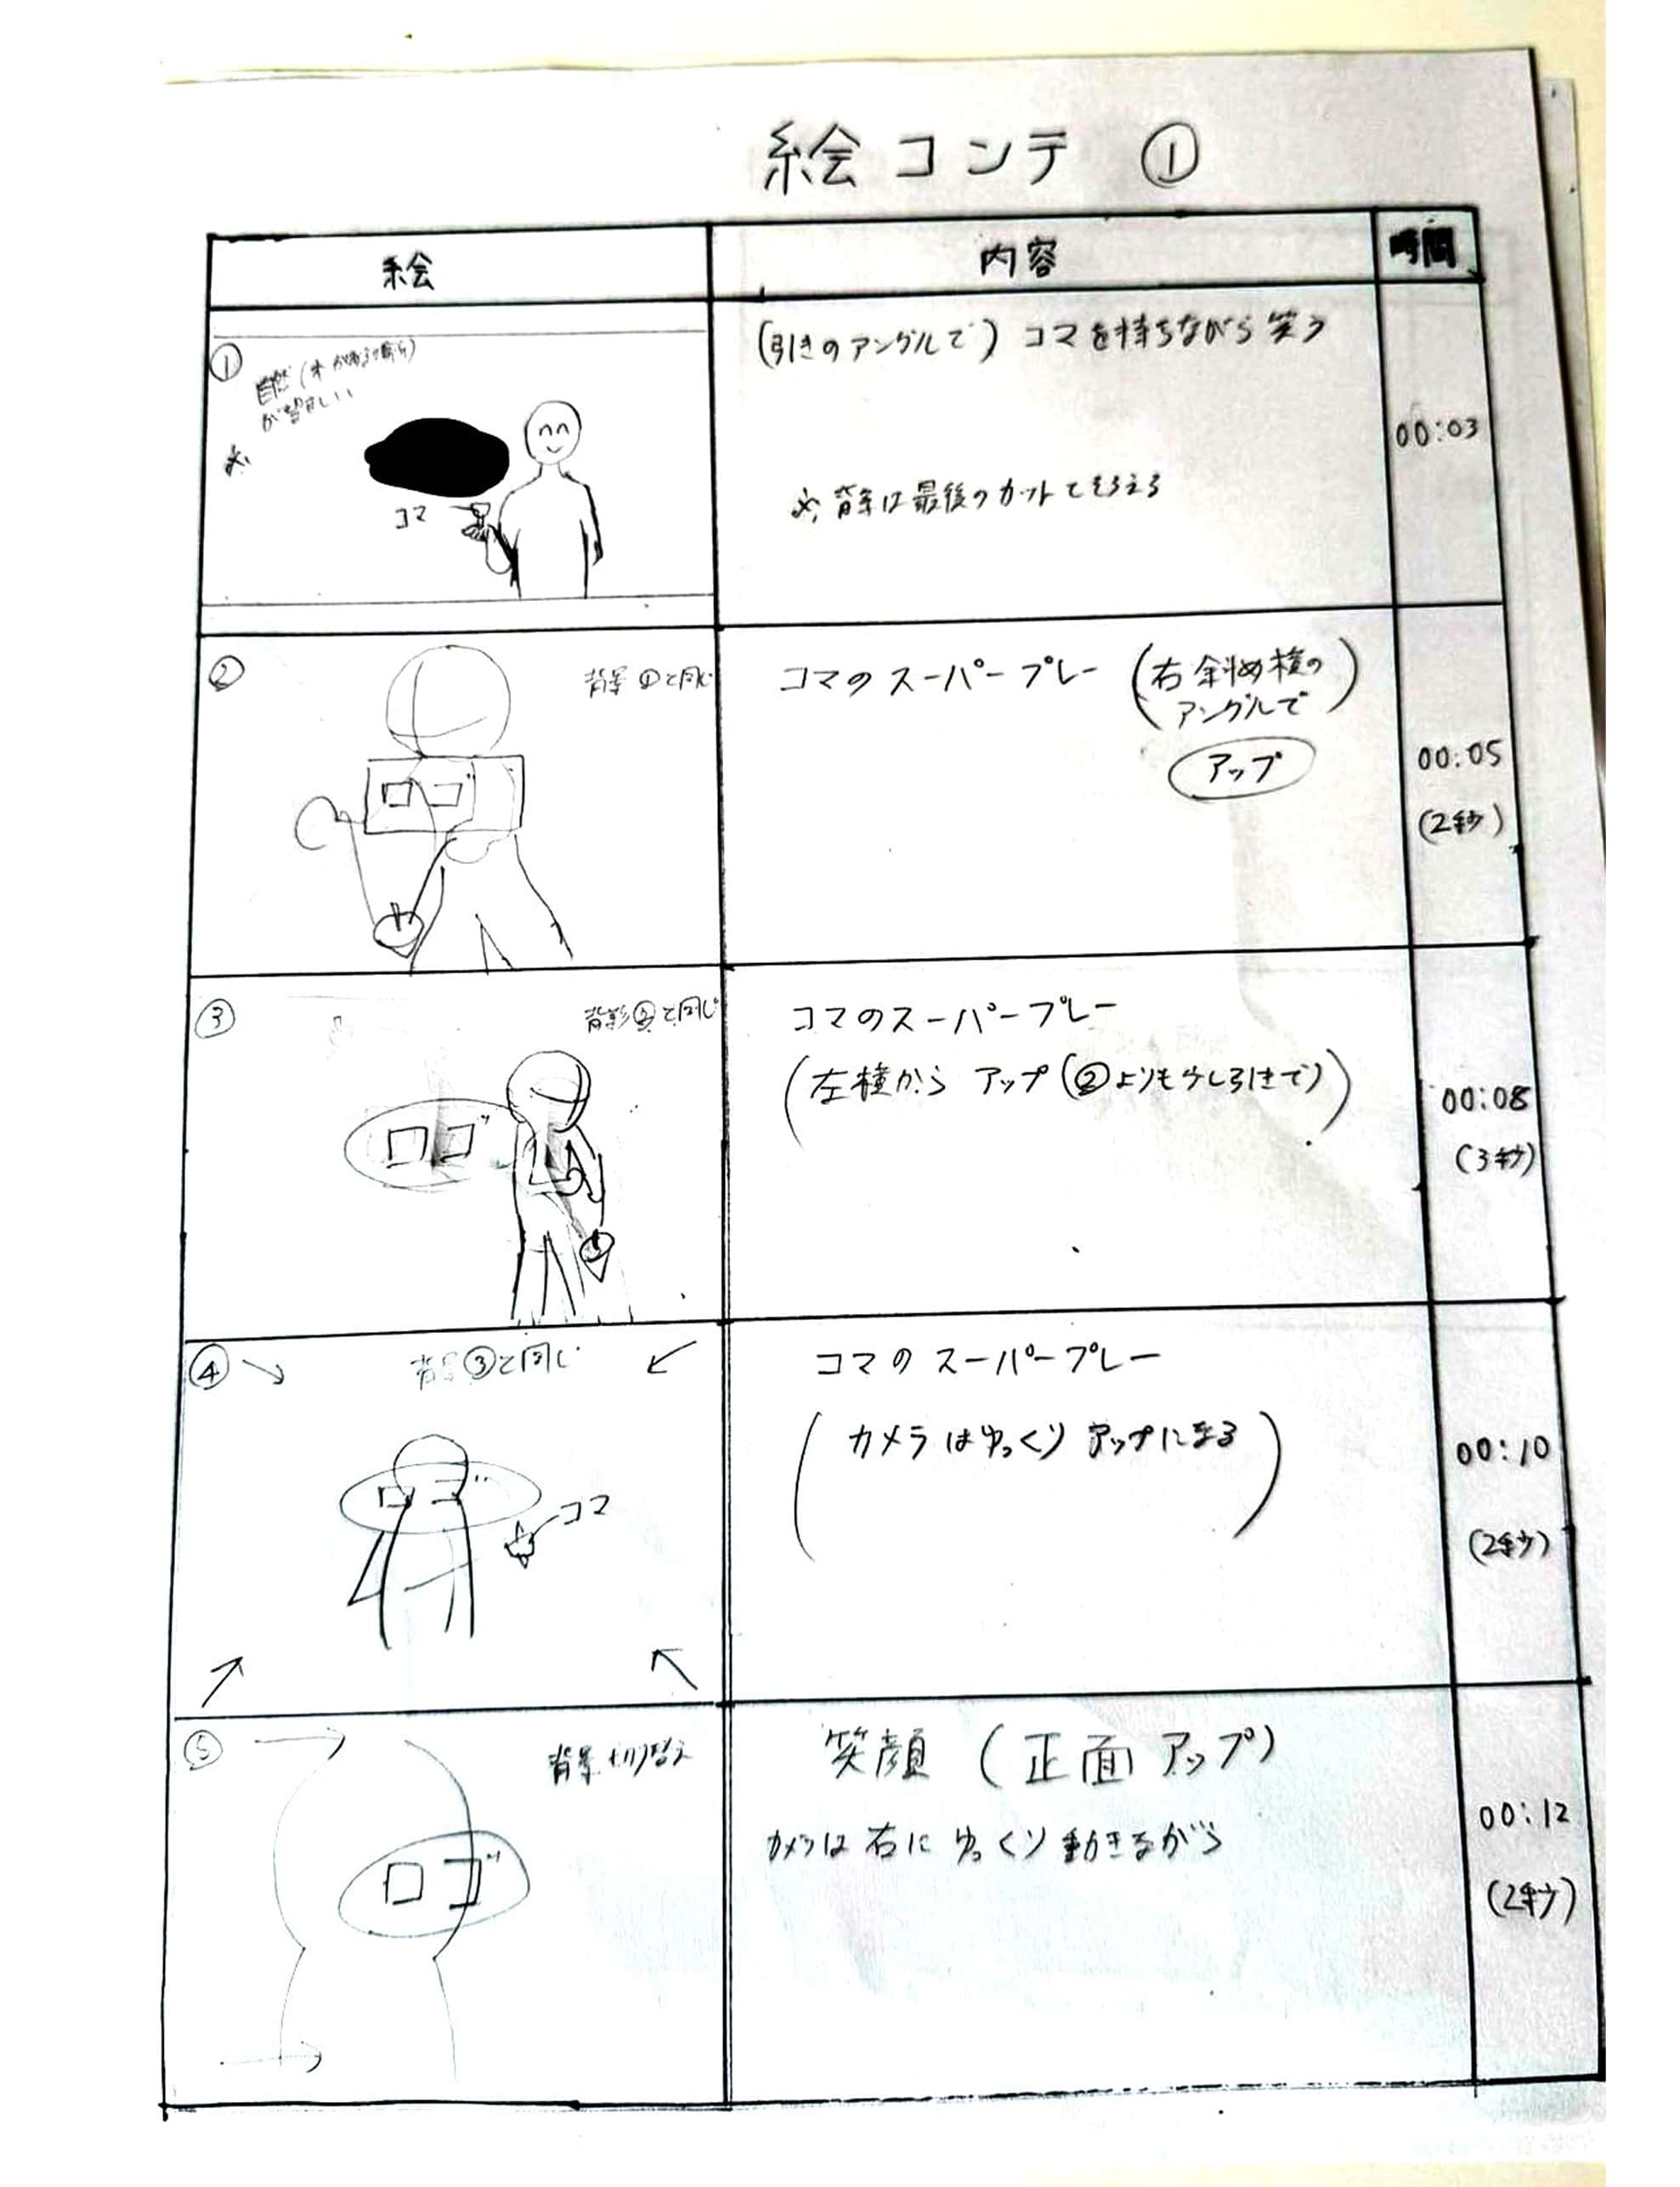 絵コンテ ①
絵
内容
時間
①
自然(木がある場所)
が望ましい
※
コマ
(引きのアングルで) コマを持ちながら笑う
※ 背景は最後のカットでそろえる
00:03
②
背景①と同じ
ロゴ
コマのスーパープレー (右斜め横の
アングルで)
アップ
00:05
(2秒)
③
背影②と同じ
ロゴ
コマのスーパープレー
(左横から アップ(②よりも少し引きで))
00:08
(3秒)
④
背景③と同じ
ロゴ
コマ
コマのスーパープレー
(カメラはゆっくりアップになる)
00:10
(2秒)
⑤
背景切り替え
ロゴ
笑顔 (正面アップ)
カメラは右にゆっくり動きながら
00:12
(2秒)